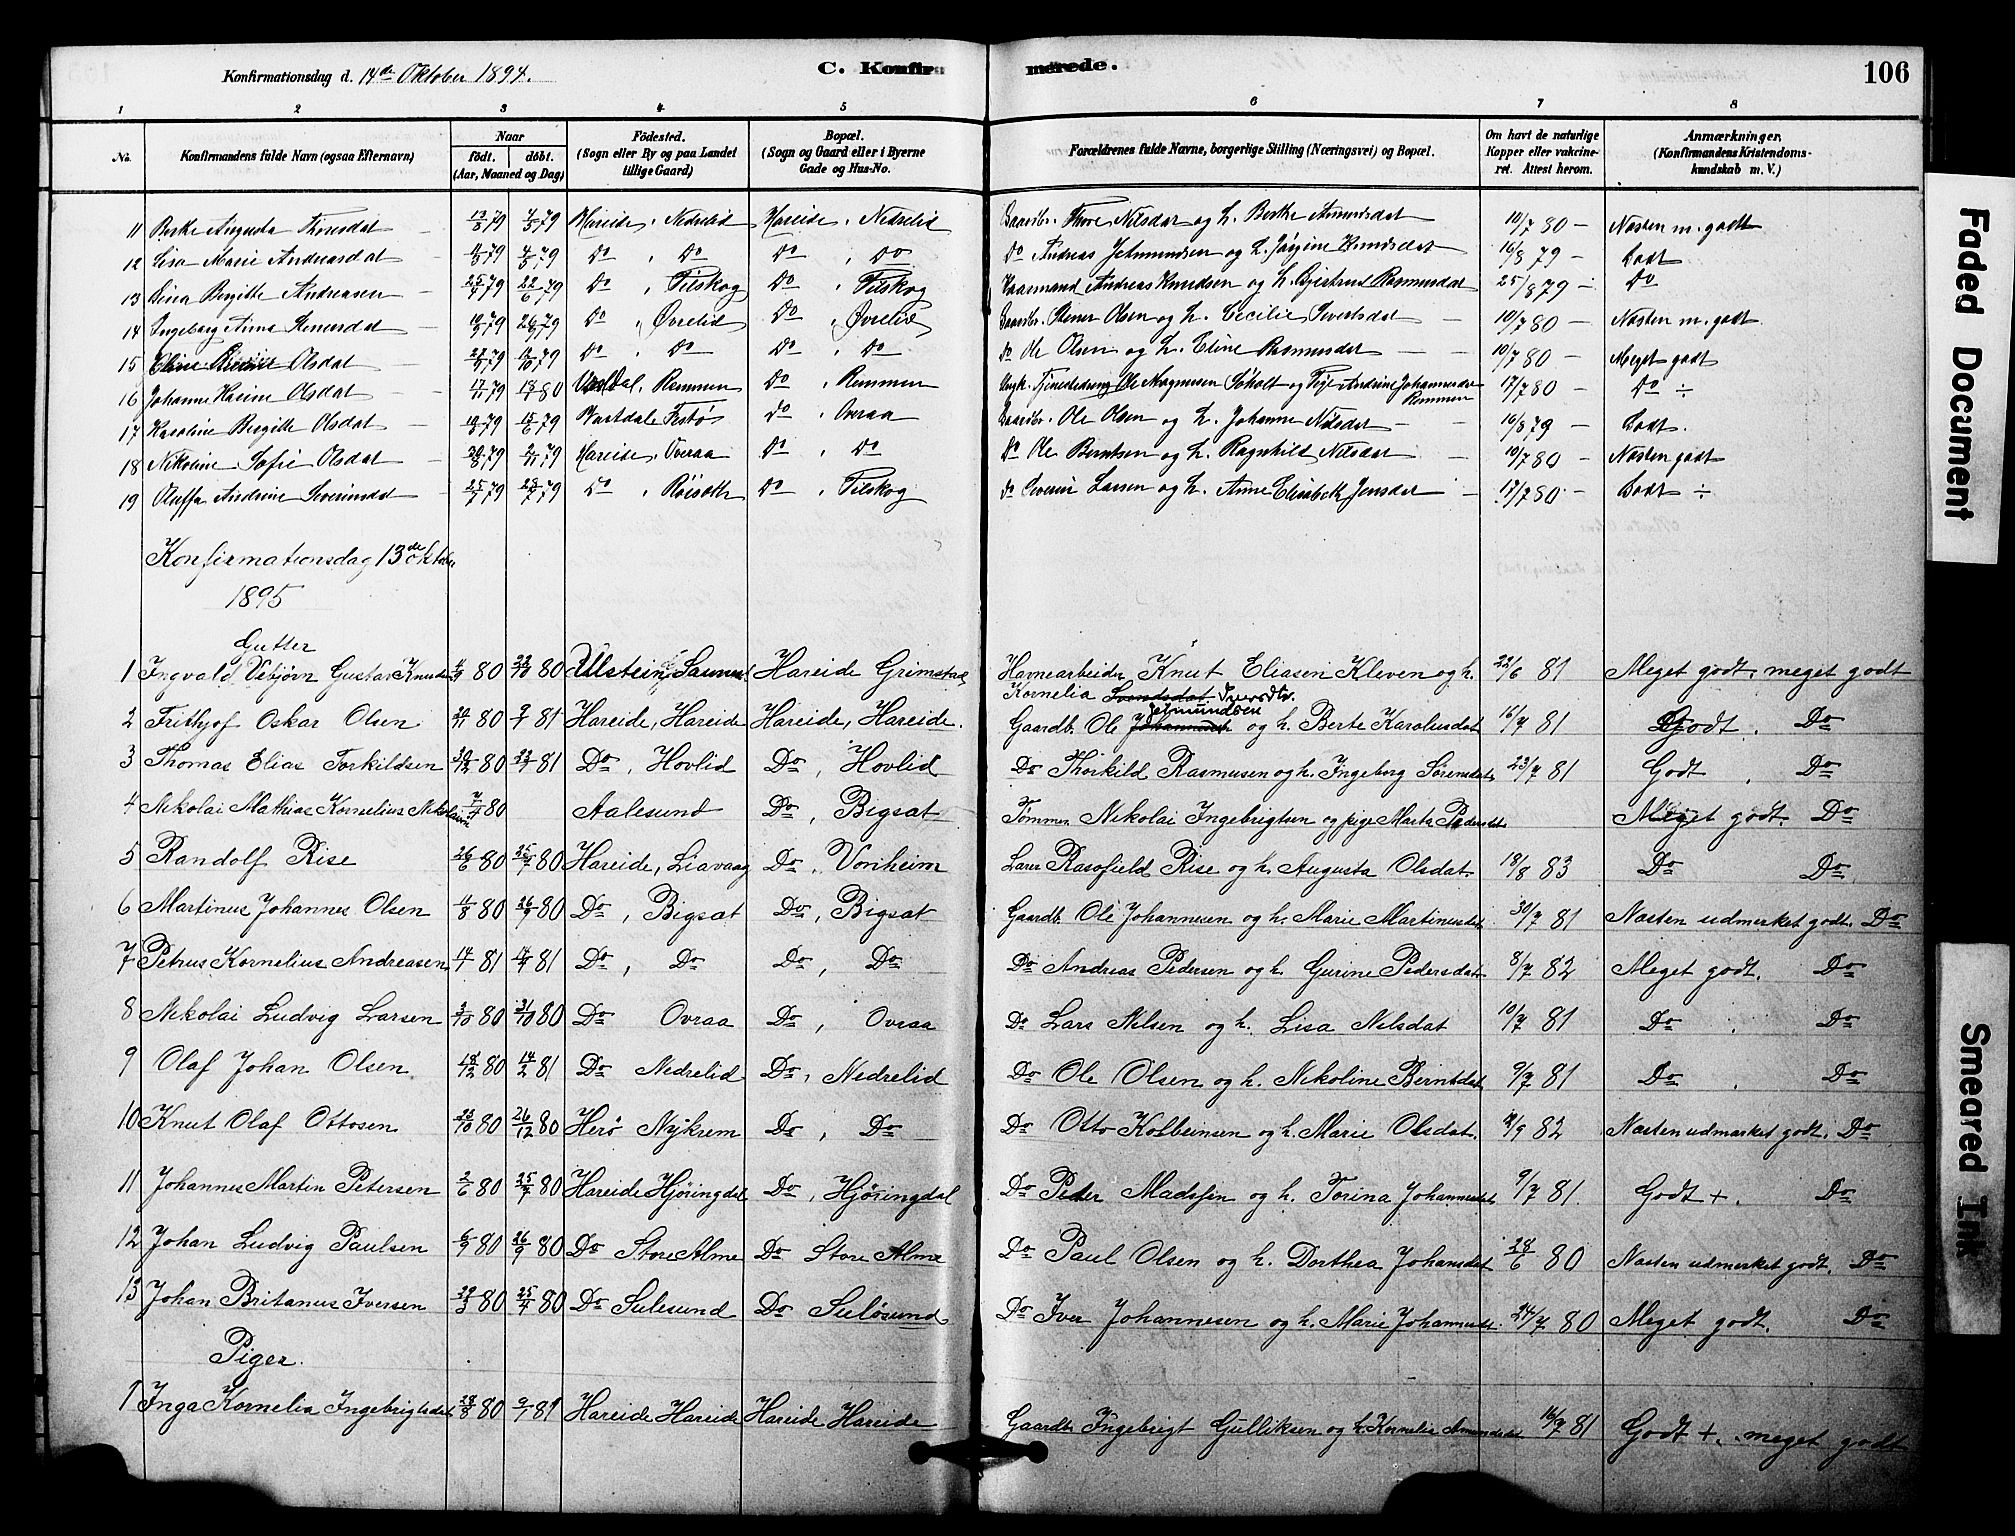 Konfirmationsdag d. 14de Oktober 1894.
C. Konfirmerede.
106
1 2 3 4 5 6 7 8
No. Konfirmandens fulde Navn (ogsaa Efternavn) Naar födt. döbt. (Aar, Maaned og Dag) Födested. (Sogn eller By og paa Landet tillige Gaard) Bopæl. (Sogn og Gaard eller i Byerne Gade og Hus-No. Forældrenes fulde Navne, borgerlige Stilling (Næringsvei) og Bopæl. Om havt de naturlige Kopper eller vakcineret. Attest herom. Anmærkninger. (Konfirmandens Kristendomskundskab m. V.)
11 Berte Augusta Thoresdat 79 79 Hareide, Nedrelid Hareide, Nedrelid Gaardbr. Thore Nilsen og h. Berthe 10/7 80 – Næsten m. godt
12 Lisa Marie Andreasdat 79 79 Do , Do Do , Do Do Andreas Jetmundsen og h. Jörgine Knudsdat 16/8 79 – Godt
13 Sina Bergitte Andreasen 79 22/6 79 Do , Pilskog Do , Pilskog Andreas Knudsen og h. Rasmusdat 25/8 79 – Do
14 Ingeborg Anna Stenersdat 79 79 Do , Øvrelid Do , Øvrelid Gaardbr. Stener Olsen og h. Cecilie Sivertsdat 10/7 80 – Næsten m. godt
15 Eline Olsdat 79 79 Do , Do Do , Do Do Ole Olsen og h. Eline Rasmusdat 10/7 80 – Meget godt
16 Johanne Karine Olsdat 79 80 Remmen Do , Remmen Ungk. Tjenestedreng Ole Magnussen Søholt og Pige Andrine Johannesdat Remmen 17/7 80 – Do ÷
17 Karoline Bergitte Olsdat 79 15/6 79 Vartdale Festø Do , Overaa Gaardbr. Ole Olsen og h. Johanne Nilsdat 16/8 79 – Godt.
18 Nikoline Sofie Olsdat 79 79 Hareide, Overaa Do , Do Do Ole Berntsen og h. Ragnhild Nilsdat 10/7 80 – Næsten godt
19 Oluffa Andrine Severinsdat 79 79 Do , Röiseth Do , Pilskog Do Severin Larsen og h. Anne Elisabeth Jensdat 17/7 80 – Godt ÷
Konfirmationsdag 13de Oktober
1895
Gutter
1 Ingvald Vebjørn Gustav Knudsen 80 80 Ulstein, Hareide Grimstad Havnearbeider Knut Eliasen Kleven og h. Kornelia 22/6 81 Meget godt, meget godt
2 Frithjof Oskar Olsen 80 81 Hareide, Hareide Hareide, Hareide. Gaardb. Ole Jetmundsen og h. Berte Karolusdat 16/7 81 Godt. Do
3 Thomas Elias Torkildsen 80 81 Do, Hovlid Do, Hovlid Do Thorkild Rasmusen og h. Ingeborg Sörensdat 23/7 81 Godt , Do
4 Nikolai Mathias Kornelius Nikolaisen 80 Aalesund Do, Bigsat Tømmer. Nikolai Ingebrigtsen og pige Marta Pedersdt Meget godt. Do
5 Randolf Rise 26/6 80 25/7 80 Hareide, Liavaag Do, Vonheim Lærer Rasofield Rise og h. Augusta Olsdat. 18/8 83 Do Do
6 Martinus Johannes Olsen 80 26/9 80 Do, Bigsat Do, Bigsat Gaardb. Ole Johannesen og h. Marie Martinusdat 30/7 81 Næsten udmerket godt. Do
7 Petrus Kornelius Andreasen 81 81 Do, Do Do, Do Do Andreas Pedersen og h. Gurine Pedersdat 8/7 82 Meget godt. Do
8 Nikolai Ludvig Larsen 3/10 80 31/10 80 Do Ovraa Do, Ovraa Do Lars Nilsen og h. Lisa Nilsdat 10/7 81 Do . Do
9 Olaf Johan Olsen 18/12 80 14/2 81 Do Nedrelid Do, Nedrelid Do Ole Olsen og h. Nikoline Berntdat 9/7 81 Do . Do
10 Knut Olaf Ottosen 25/10 80 26/12 80 Herö Nykrem Do, Do Do Otto Kolbeinsen og h. Marie Olsdat. 4/9 82 Næsten udmærket godt. Do
11 Johannes Martin Petersen 2/6 80 25/7 80 Hareide Hjöringdal Do, Hjöringdal Do Peter Madssen og h. Torina Johannesdt 9/7 81 Godt +. Do
12 Johan Ludvig Paulsen 6/9 80 26/9 80 Do Store Alme Do Store Alme Do Paul Olsen og h. Dorthea Johansdat 28/6 80 Næsten udmerket godt. Do
13 Johan Britanus Iversen 29/3 80 25/4 80 Do Sulesund Do Sulösund Do Iver Johannesen og h. Marie Johannesdt. 24/7 80 Meget godt. Do
Piger.
1 Inga Kornelia Ingebrigtsdat 28/8 80 81 Hareide Hareide Hareide Hareide Gaardb. Ingebrigt Gulliksen og h. Kornelia Amundsdat 16/7 81 Godt +. meget godt
Faded Document
Smeared Ink